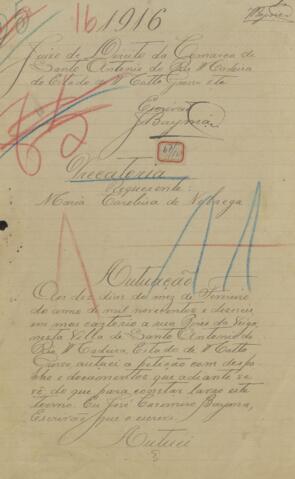 16 1916
Juizo de Direito da Comarca de
Santo Antonio do Rio Madeira
do Estado de Matto Grosso
Escrivão
J. Bayma
Precatoria
Requerente:
Maria Carolina de Nobrega
Autuação
Aos dez dias do mez de Fevereiro
do anno de mil novecentos e dezeseis
em meu cartorio a rua
nesta Villa de Santo Antonio do
Rio Madeira, Estado de Matto
Grosso autuei a petição com despa-
cho e documentos que adiante se
vê do que para constar lavro este
termo. Eu José Casemiro Bayma,
Escrivão, que o escrevi.
Autuei